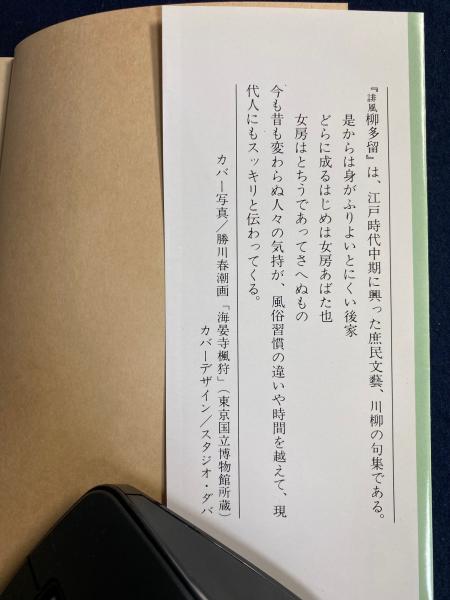 『誹風柳多留』は、江戸時代中期に興った庶民文藝、川柳の句集である。
是からは身がふりよいとにくい後家
どらに成るはじめは女房あばた也
女房はとちうであってさへぬもの
今も昔も変わらぬ人々の気持が、風俗習慣の違いや時間を越えて、現
代人にもスッキリと伝わってくる。
カバー写真／勝川春潮画「海晏寺楓狩」（東京国立博物館所蔵）
カバーデザイン／スタジオ・ダバ